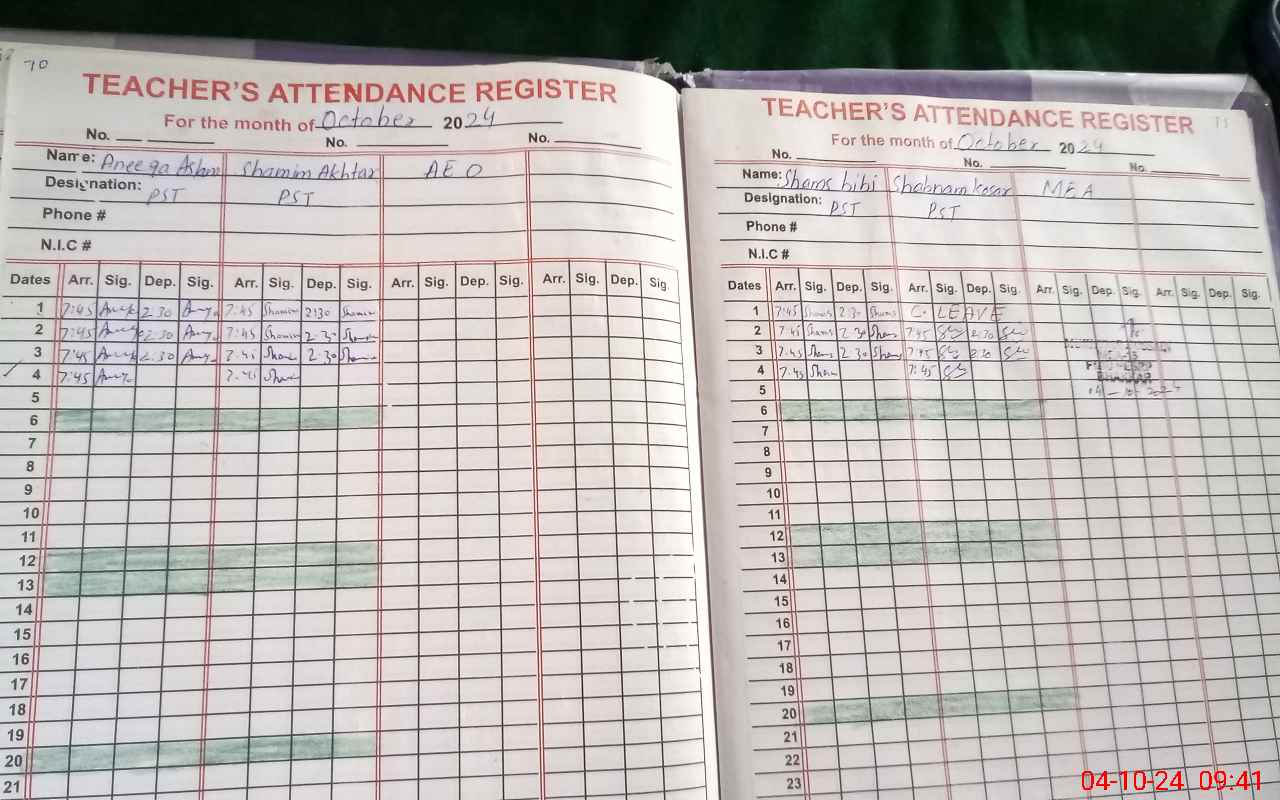 70
TEACHER'S ATTENDANCE REGISTER
For the month of October 2024
No. No. No.
Name: Aneeqa Ashm Shamim Akhtar AEO
Designation: PST PST
Phone #
N.I.C #
Dates Arr. Sig. Dep. Sig. Arr. Sig. Dep. Sig. Arr. Sig. Dep. Sig. Arr. Sig. Dep. Sig.
1 7:45 2:30 7:45 Shamim 2:30 Shamim
2 7:45 2:30 7:45 Shamim 2:30
3 7:45 2:30 7:45 2:30
4 7:45 7:45
5
6
7
8
9
10
11
12
13
14
15
16
17
18
19
20
21
TEACHER'S ATTENDANCE REGISTER
For the month of October 2024
No. No. No.
Name: Shams bibi Shabnam kosar MEA
Designation: PST PST
Phone #
N.I.C #
Dates Arr. Sig. Dep. Sig. Arr. Sig. Dep. Sig. Arr. Sig. Dep. Sig. Arr. Sig. Dep. Sig.
1 7:45 Shams 2:30 Shams C. LEAVE
2 7:45 Shams 2:30 Shams 7:45 2:30
3 7:45 Shams 2:30 Shams 7:45 2:30
4 7:45 Sham 7:45
5 04-10-2024
6
7
8
9
10
11
12
13
14
15
16
17
18
19
20
21
22
23
04-10-24 09:41